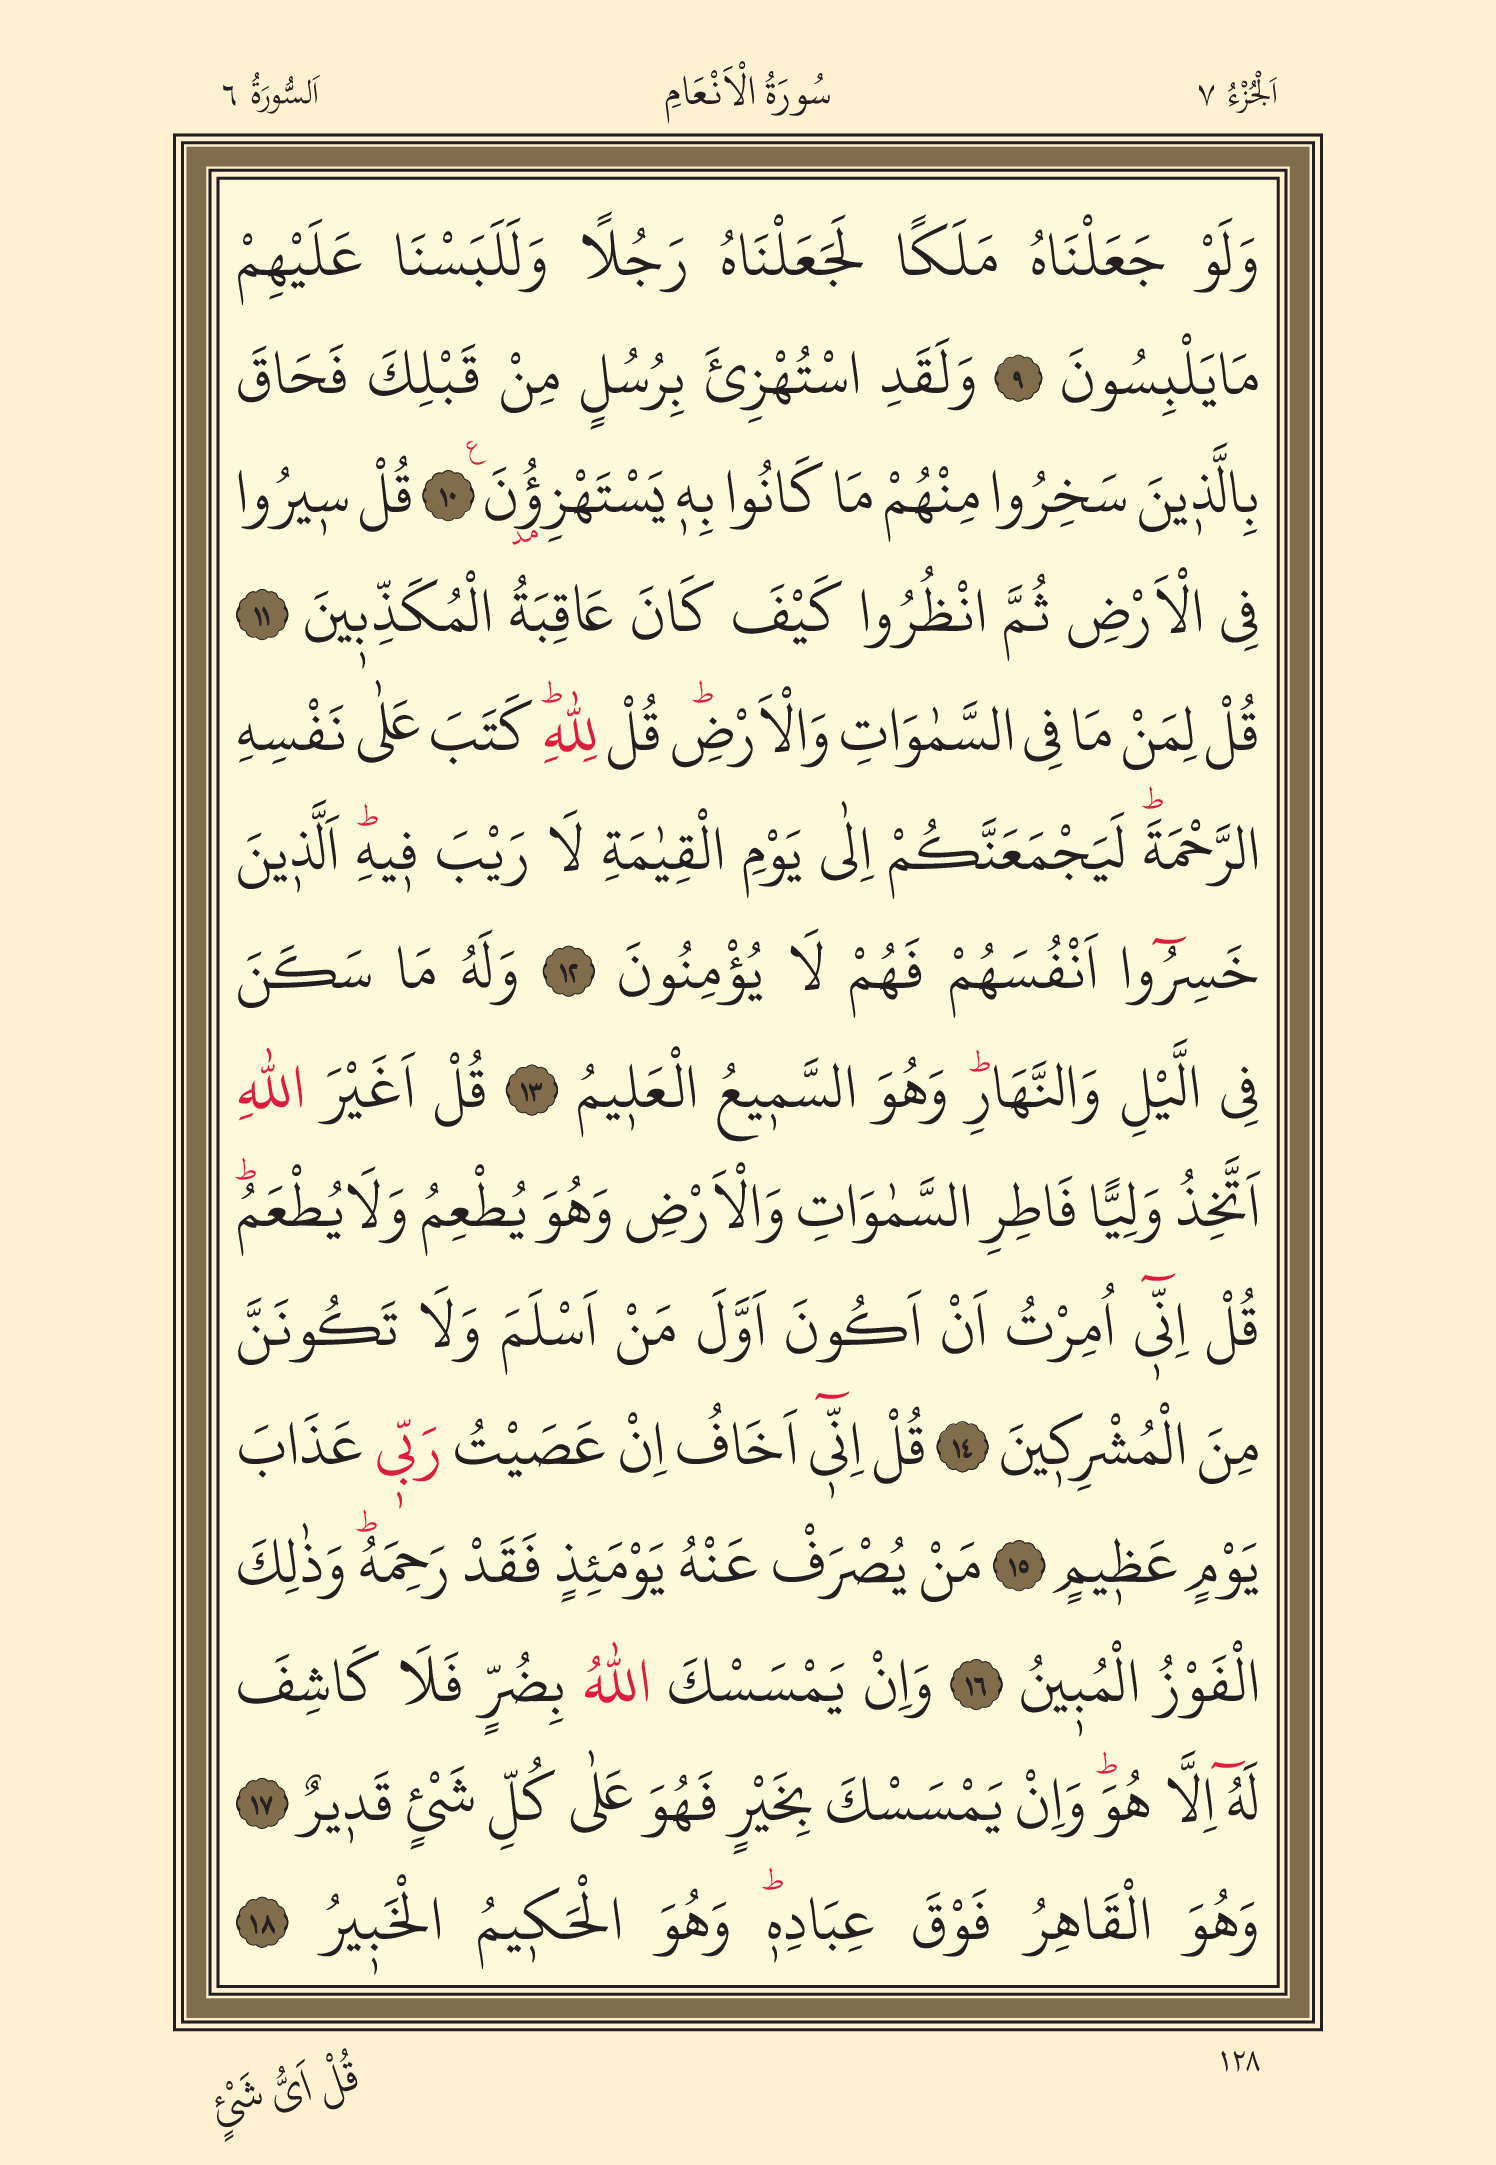 اَلْجُزْءُ ٧ سُورَةُ الْاَنْعَامِ اَلسُّورَةُ ٦
وَلَوْ جَعَلْنَاهُ مَلَكًا لَجَعَلْنَاهُ رَجُلًا وَلَلَبَسْنَا عَلَيْهِمْ
مَايَلْبِسُونَ ٩ وَلَقَدِ اسْتُهْزِئَ بِرُسُلٍ مِنْ قَبْلِكَ فَحَاقَ
بِالَّذٖينَ سَخِرُوا مِنْهُمْ مَا كَانُوا بِهٖ يَسْتَهْزِؤُنَ ع مد ١٠ قُلْ سٖيرُوا
فِى الْاَرْضِ ثُمَّ انْظُرُوا كَيْفَ كَانَ عَاقِبَةُ الْمُكَذِّبٖينَ ١١
قُلْ لِمَنْ مَا فِى السَّمٰوَاتِ وَالْاَرْضِؕ قُلْ لِلّٰهِؕ كَتَبَ عَلٰى نَفْسِهِ
الرَّحْمَةَؕ لَيَجْمَعَنَّكُمْ اِلٰى يَوْمِ الْقِيٰمَةِ لَا رَيْبَ فٖيهِؕ اَلَّذٖينَ
خَسِرُٓوا اَنْفُسَهُمْ فَهُمْ لَا يُؤْمِنُونَ ١٢ وَلَهُ مَا سَكَنَ
فِى الَّيْلِ وَالنَّهَارِؕ وَهُوَ السَّمٖيعُ الْعَلٖيمُ ١٣ قُلْ اَغَيْرَ اللّٰهِ
اَتَّخِذُ وَلِيًّا فَاطِرِ السَّمٰوَاتِ وَالْاَرْضِ وَهُوَ يُطْعِمُ وَلَا يُطْعَمُؕ
قُلْ اِنّٖٓى اُمِرْتُ اَنْ اَكُونَ اَوَّلَ مَنْ اَسْلَمَ وَلَا تَكُونَنَّ
مِنَ الْمُشْرِكٖينَ ١٤ قُلْ اِنّٖٓى اَخَافُ اِنْ عَصَيْتُ رَبّٖى عَذَابَ
يَوْمٍ عَظٖيمٍ ١٥ مَنْ يُصْرَفْ عَنْهُ يَوْمَئِذٍ فَقَدْ رَحِمَهُؕ وَذٰلِكَ
الْفَوْزُ الْمُبٖينُ ١٦ وَاِنْ يَمْسَسْكَ اللّٰهُ بِضُرٍّ فَلَا كَاشِفَ
لَهُٓ اِلَّا هُوَؕ وَاِنْ يَمْسَسْكَ بِخَيْرٍ فَهُوَ عَلٰى كُلِّ شَیْئٍ قَدٖيرٌ ١٧
وَهُوَ الْقَاهِرُ فَوْقَ عِبَادِهٖؕ وَهُوَ الْحَكٖيمُ الْخَبٖيرُ ١٨
١٢٨
قُلْ اَىُّ شَیْءٍ